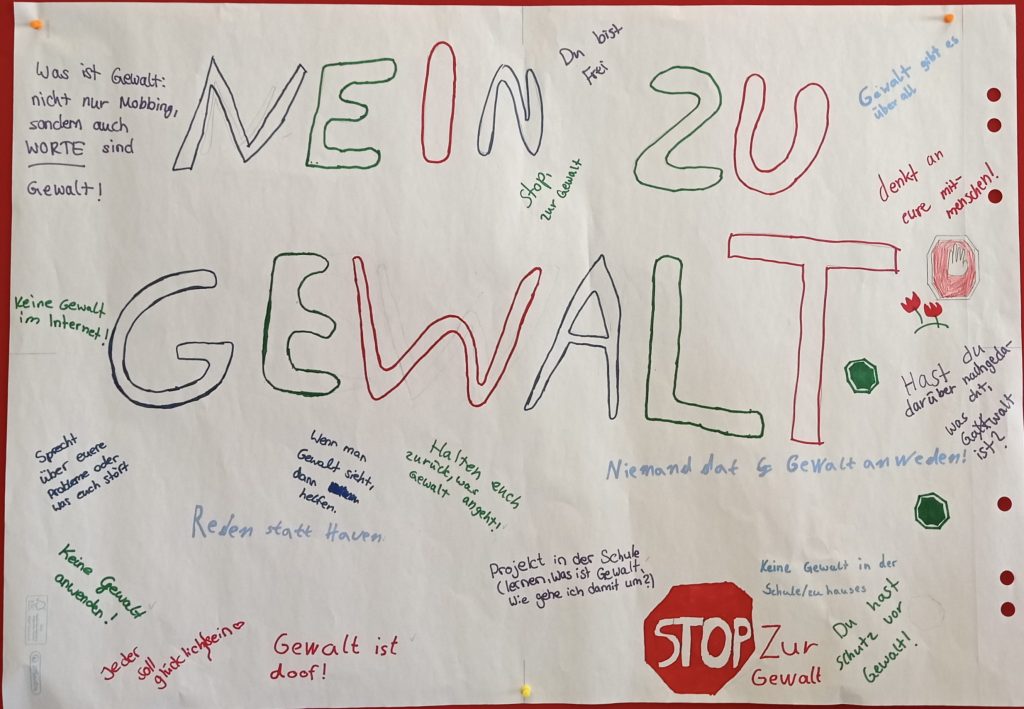 Was ist Gewalt:
nicht nur Mobbing,
sondern auch
WORTE sind
Gewalt!
NEIN ZU
Du bist
Frei
Gewalt gibt es
über all
Stop,
zur Gewalt
denkt an
eure mit-
menschen!
GEWALT
Keine Gewalt
im Internet!
Hast du
darüber nachgeda-
cht,
was
Gewalt
ist?
Sprecht
über euere
Probleme oder
was euch stört
Wenn man
Gewalt sieht,
dann
helfen.
Halten euch
zurück, was
Gewalt angeht!
Niemand daf G Gewalt anweden!
Reden statt Hauen
Projekt in der Schule
(lernen, was ist Gewalt,
Wie gehe ich damit um?)
Keine Gewalt in der
Schule/zuhauses
Keine Gewalt
anwenden!
Jeder
soll
glücklich sein
Gewalt ist
doof!
STOP Zur
Gewalt
Du hast
schutz vor
Gewalt!